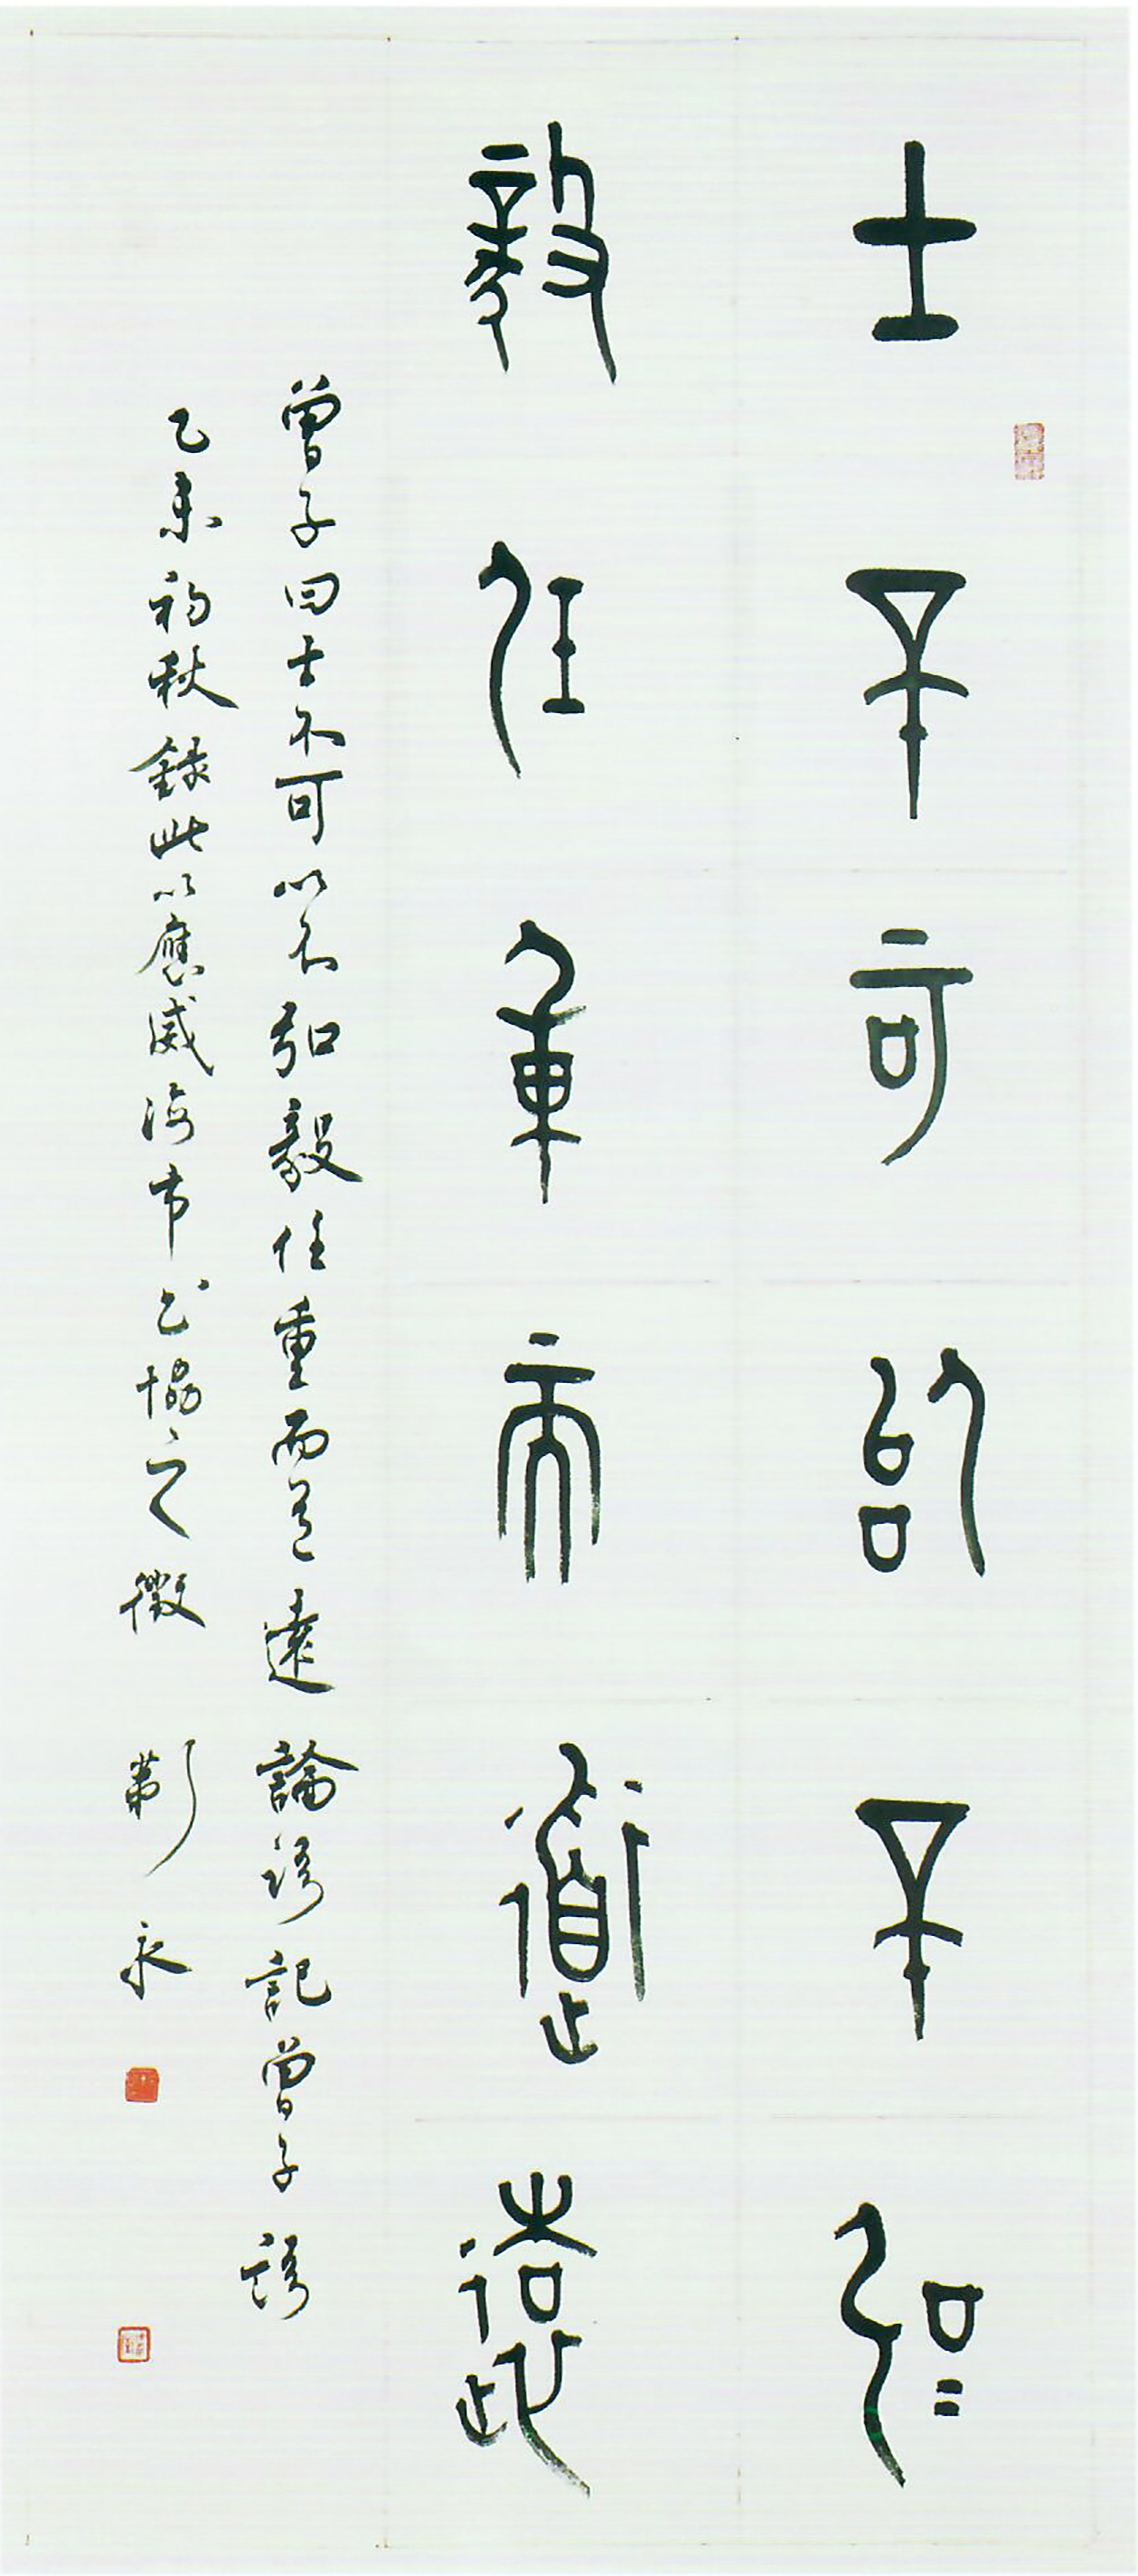 士不可以不弘
毅任重而道遠
曾子曰士不可以不弘毅任重而道遠論語記曾子語
乙未初秋錄此以應威海市書協之徵永